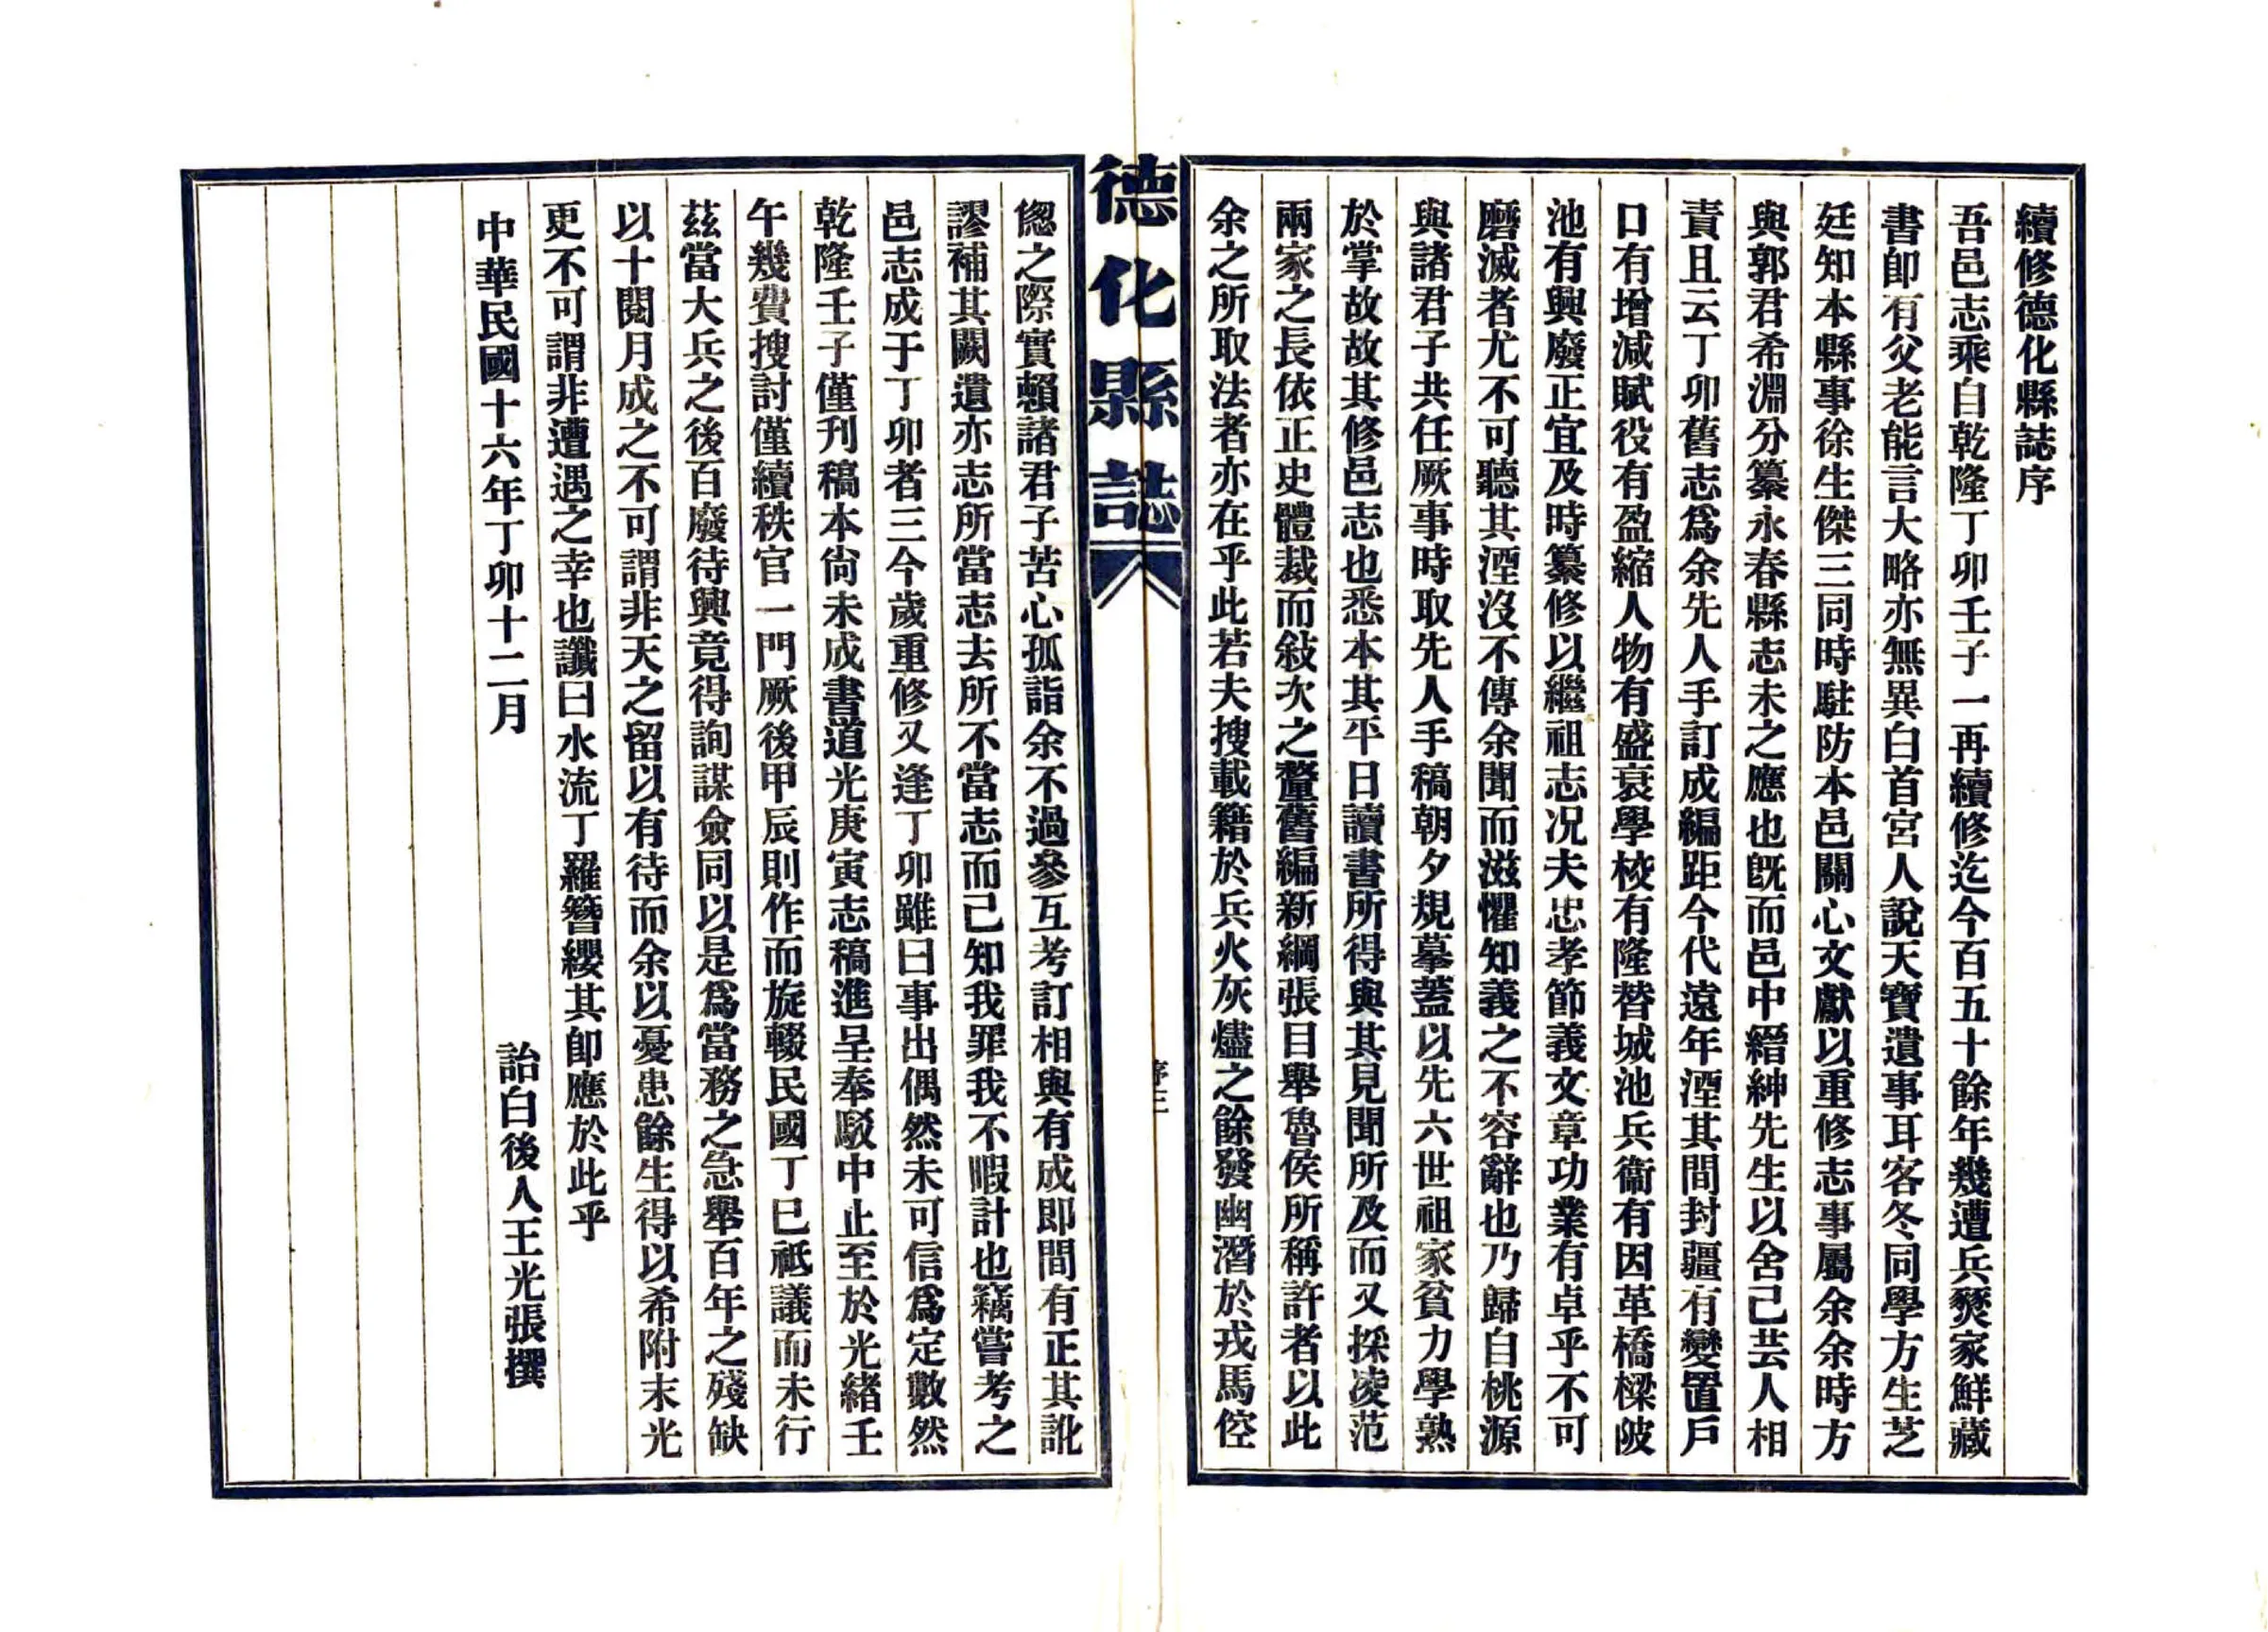 續修德化縣誌序
吾邑志乘自乾隆丁卯壬子一再續修迄今百五十餘年幾遭兵燹家鮮藏
書卽有父老能言大略亦無異白首宮人說天寶遺事耳客冬同學方生芝
廷知本縣事徐生傑三同時駐防本邑關心文獻以重修志事屬余余時方
與郭君希淵分纂永春縣志未之應也旣而邑中縉紳先生以舍己芸人相
責且云丁卯舊志爲余先人手訂成編距今代遠年湮其間封疆有變置戶
口有增減賦役有盈縮人物有盛衰學校有隆替城池兵衞有因革橋樑陂
池有興廢正宜及時纂修以繼祖志况夫忠孝節義文章功業有卓乎不可
磨滅者尤不可聽其湮沒不傳余聞而滋懼知義之不容辭也乃歸自桃源
與諸君子共任厥事時取先人手稿朝夕規摹蓋以先六世祖家貧力學熟
於掌故故其修邑志也悉本其平日讀書所得與其見聞所及而又採凌范
兩家之長依正史體裁而敍次之釐舊編新綱張目舉魯侯所稱許者以此
余之所取法者亦在乎此若夫搜載籍於兵火灰燼之餘發幽潛於戎馬倥
德化縣誌
序三
傯之際實賴諸君子苦心孤詣余不過參互考訂相與有成即間有正其訛
謬補其闕遺亦志所當志去所不當志而己知我罪我不暇計也竊嘗考之
邑志成于丁卯者三今歲重修又逢丁卯雖曰事出偶然未可信爲定數然
乾隆壬子僅刊稿本尙未成書道光庚寅志稿進呈奉駁中止至於光緒壬
午幾費搜討僅續秩官一門厥後甲辰則作而旋輟民國丁巳祗議而未行
茲當大兵之後百廢待興竟得詢謀僉同以是爲當務之急舉百年之殘缺
以十閱月成之不可謂非天之留以有待而余以憂患餘生得以希附末光
更不可謂非遭遇之幸也讖曰水流丁羅簪纓其卽應於此乎
中華民國十六年丁卯十二月
詒白後人王光張撰